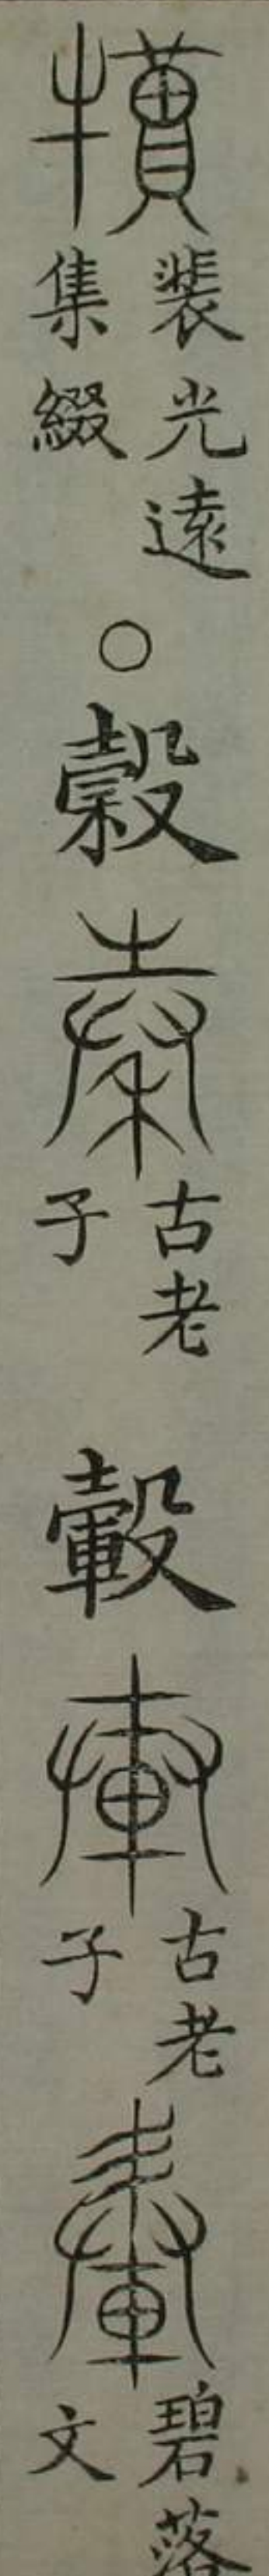 裴光遠
集綴
○穀
古老
子
轂
古老
子
碧落
文